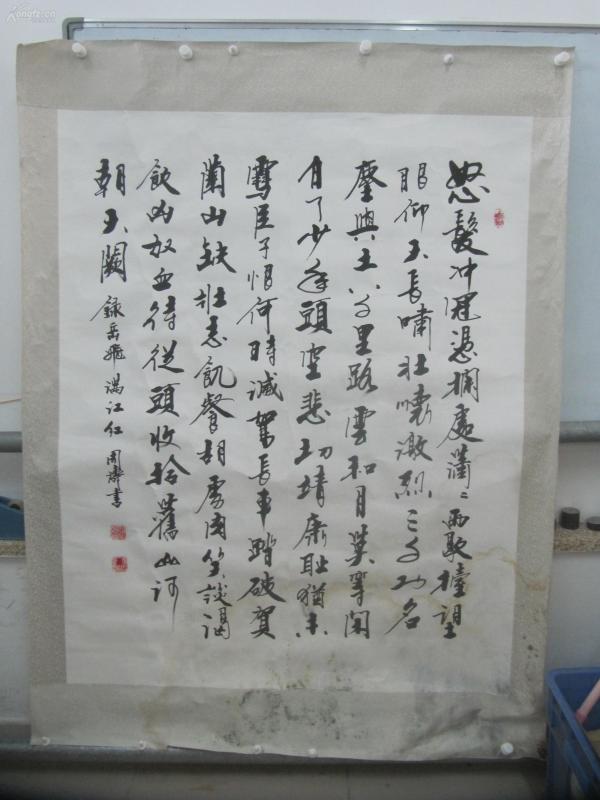 怒髮冲冠憑欄處瀟〻雨歇擡望
眼仰天長嘯壯懷激烈三千功名
塵與土八千里路雲和月莫等閑
白了少年頭空悲切靖康耻猶未
雪臣子恨何時滅駕長車踏破賀
蘭山缺壯志飢餐胡虜肉笑談渴
飲匈奴血待從頭收拾舊山河
朝天闕 錄岳飛滿江红 周書